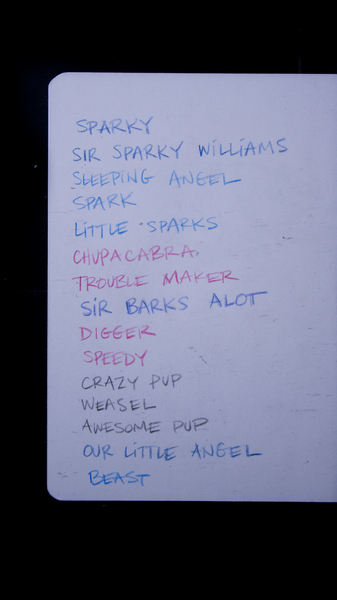 SPARKY
SIR SPARKY WILLIAMS
SLEEPING ANGEL
SPARK
LITTLE SPARKS
CHUPACABRA.
TROUBLE MAKER
SIR BARKS ALOT
DIGGER
SPEEDY
CRAZY PUP
WEASEL
AWESOME PUP
OUR LITTLE ANGEL
BEAST